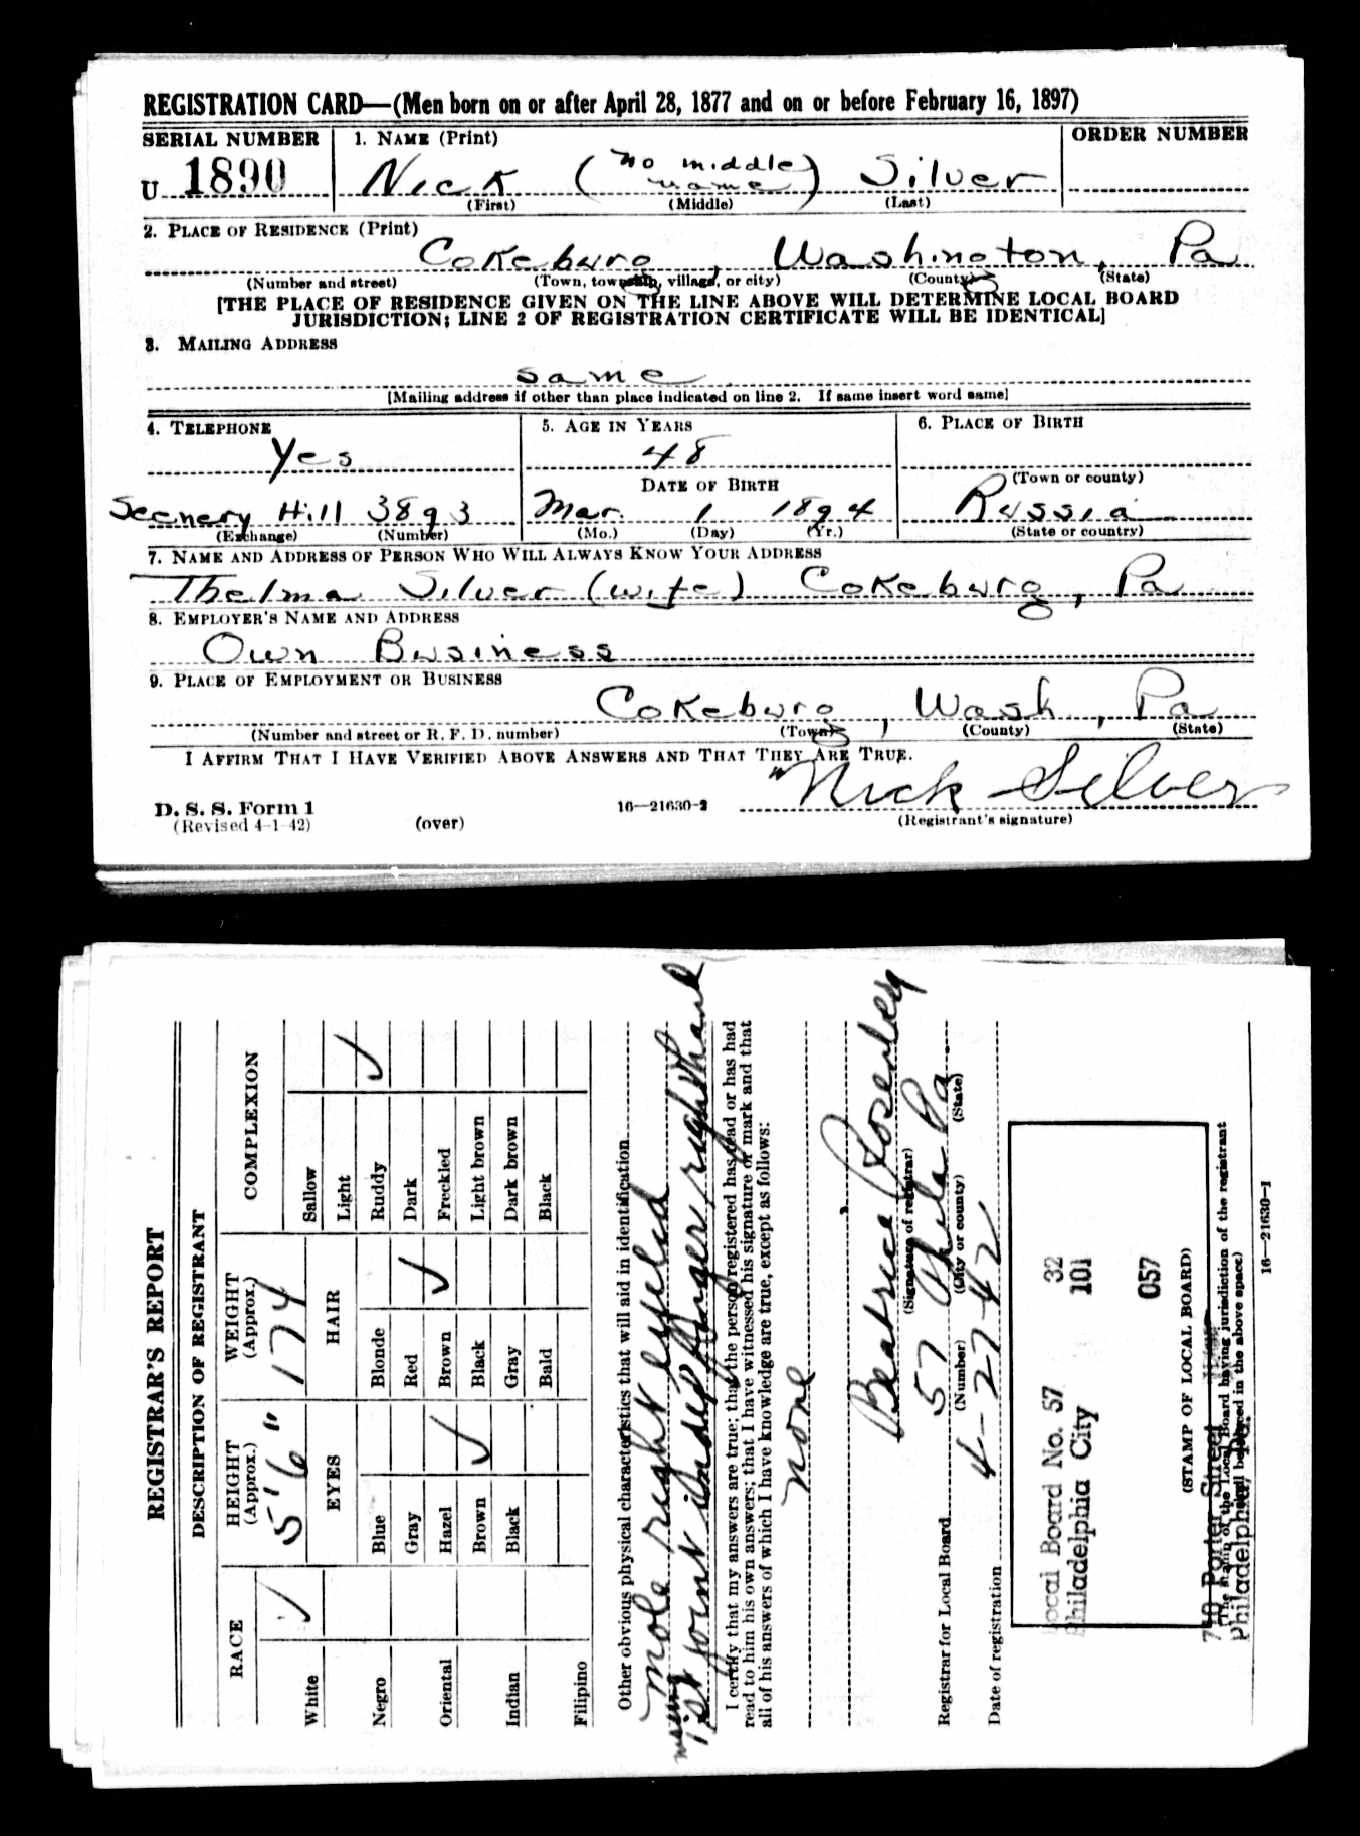 REGISTRATION CARD—(Men born on or after April 28, 1877 and on or before February 16, 1897)
SERIAL NUMBER 1. NAME (Print) ORDER NUMBER
U 1890 Nick (no middle name) Silver
(First) (Middle) (Last)
2. PLACE OF RESIDENCE (Print)
Cokeburg, Washington, Pa
(Number and street) (Town, township, village, or city) (County) (State)
[THE PLACE OF RESIDENCE GIVEN ON THE LINE ABOVE WILL DETERMINE LOCAL BOARD
JURISDICTION; LINE 2 OF REGISTRATION CERTIFICATE WILL BE IDENTICAL]
3. MAILING ADDRESS
same
[Mailing address if other than place indicated on line 2. If same insert word same]
4. TELEPHONE 5. AGE IN YEARS 6. PLACE OF BIRTH
Yes 48
DATE OF BIRTH (Town or county)
Scenery Hill 3893 Mar. 1 1894 Russia
(Exchange) (Number) (Mo.) (Day) (Yr.) (State or country)
7. NAME AND ADDRESS OF PERSON WHO WILL ALWAYS KNOW YOUR ADDRESS
Thelma Silver (wife) Cokeburg, Pa
8. EMPLOYER'S NAME AND ADDRESS
Own Business
9. PLACE OF EMPLOYMENT OR BUSINESS
Cokeburg, Wash, Pa
(Number and street or R. F. D. number) (Town) (County) (State)
I AFFIRM THAT I HAVE VERIFIED ABOVE ANSWERS AND THAT THEY ARE TRUE.
Nick Silver
D. S. S. Form 1 16—21630-2
(Revised 4-1-42) (over) (Registrant's signature)
REGISTRAR'S REPORT
DESCRIPTION OF REGISTRANT
RACE HEIGHT (Approx.) WEIGHT (Approx.) COMPLEXION
5' 6" 174
EYES HAIR
White ✓ Sallow
Light
Negro Blue Blonde Ruddy ✓
Gray Red Dark
Oriental Hazel Brown ✓ Freckled
Brown ✓ Black Light brown
Indian Black Gray Dark brown
Bald Black
Filipino
Other obvious physical characteristics that will aid in identification
mole right eyelid
missing 1st joint index finger right hand
I certify that my answers are true; that the person registered has read or has had
read to him his own answers; that I have witnessed his signature or mark and that
all of his answers of which I have knowledge are true, except as follows:
none
Beatrice
(Signature of registrar)
Registrar for Local Board 57 Phila Pa
(Number) (City or county) (State)
Date of registration 4-27-42
Local Board No. 57 32
Philadelphia City 101
057
(STAMP OF LOCAL BOARD)
710 Porter Street
(The stamp of the Local Board having jurisdiction of the registrant
shall be placed in the above space)
Philadelphia, Pa.
16—21630-1